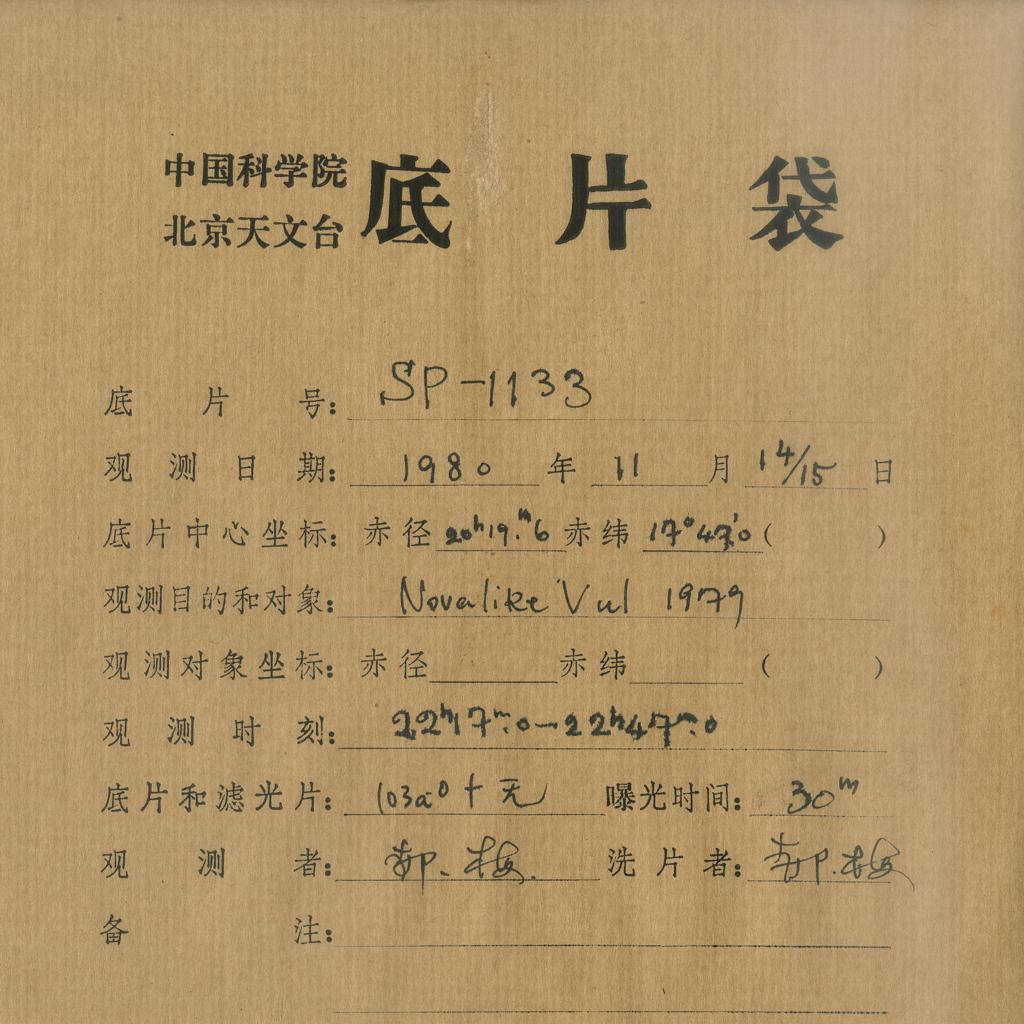 中国科学院
北京天文台
底片袋
底片号：SP-1133
观测日期：1980年11月14/15日
底片中心坐标：赤径20ʰ19.ᵐ6赤纬17°47.′0（ ）
观测目的和对象：Novalike Vul 1979
观测对象坐标：赤径 赤纬 （ ）
观测时刻：22ʰ17ᵐ.0—22ʰ47ᵐ.0
底片和滤光片：103a0+无 曝光时间：30ᵐ
观测者：郝、梅. 洗片者：郝.梅
备注：